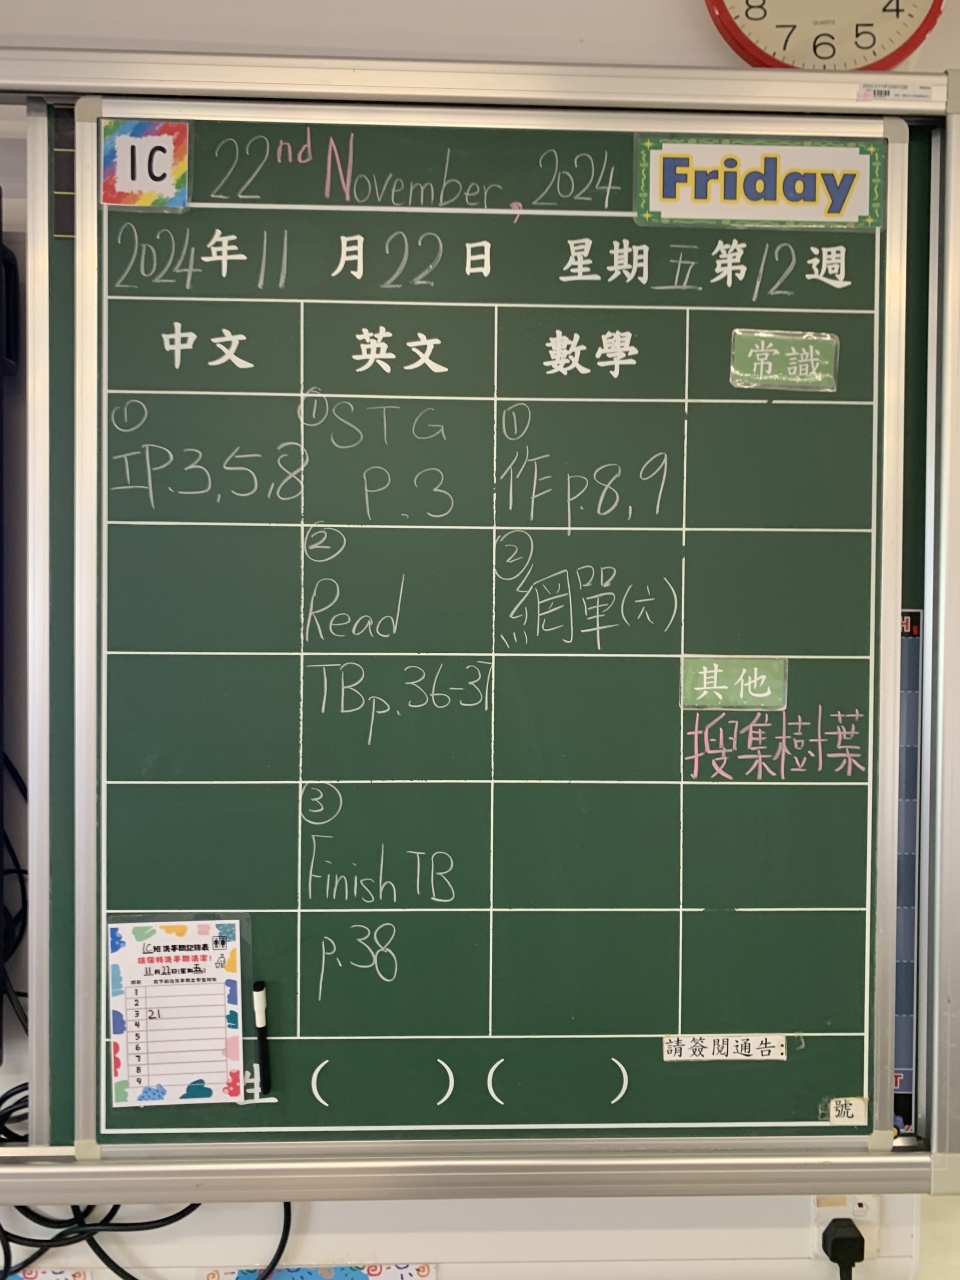 8
7
6
5
4
QUARTZ
1C
22nd November, 2024
Friday
2024年11月22日 星期五第12週
中文
英文
數學
常識
①
IP.3,5,8
① STG
P.3
①
作p.8,9
②
Read
②
網單(六)
TB p.36-37
其他
搜集樹葉
③
Finish TB
p.38
1C班洗手間記錄表
11月22日(星期五)
1
2
3 21
4
5
6
7
8
9
( ) ( )
請簽閱通告:
號